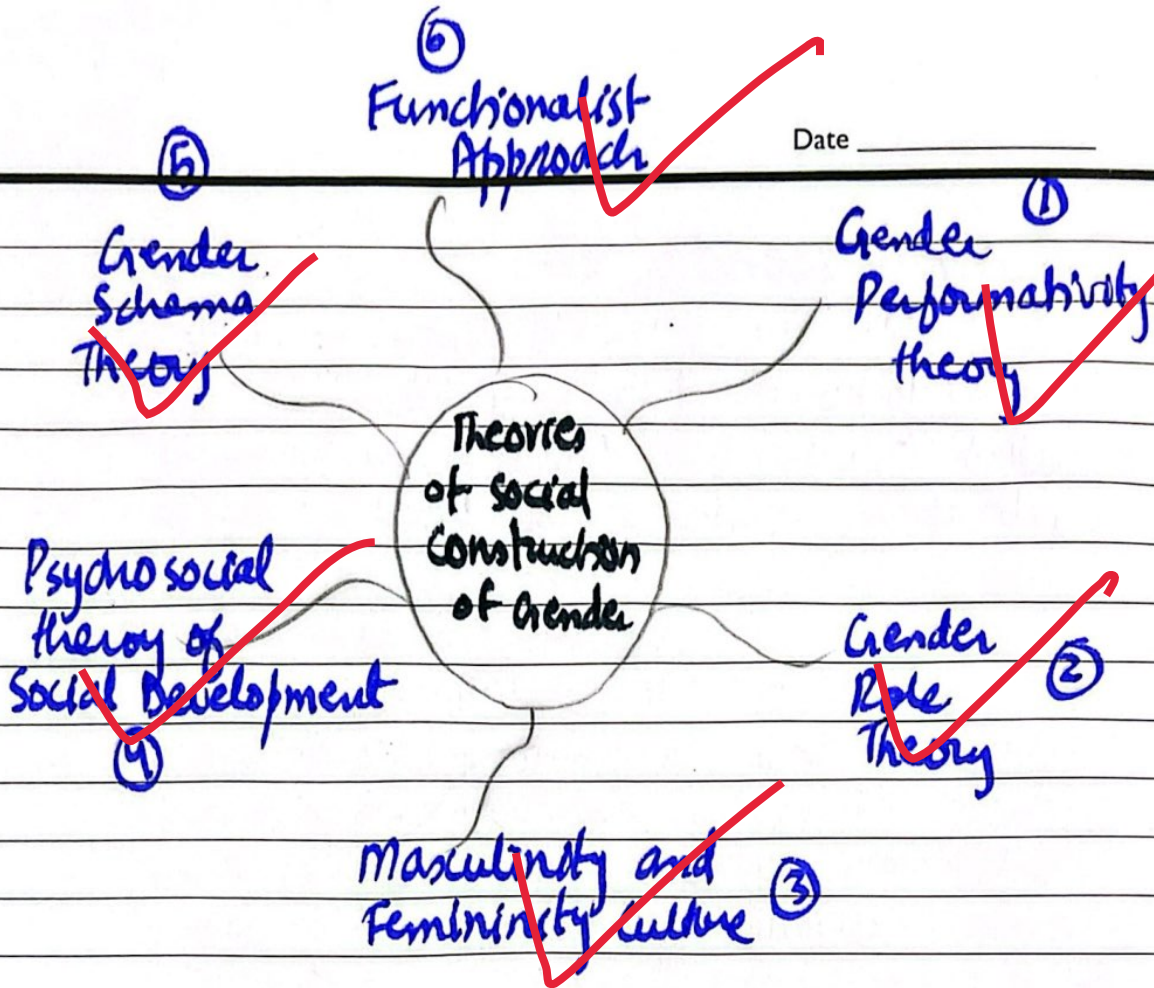 ⑥
Functionalist
Approach
Date
⑤
Gender
Schema
Theory
①
Gender
Performativity
theory
Theories
of social
Construction
of Gender
Psychosocial
theroy of
Social Development
④
Gender
Role
Theory
②
Masculinity and
Femininity Culture
③